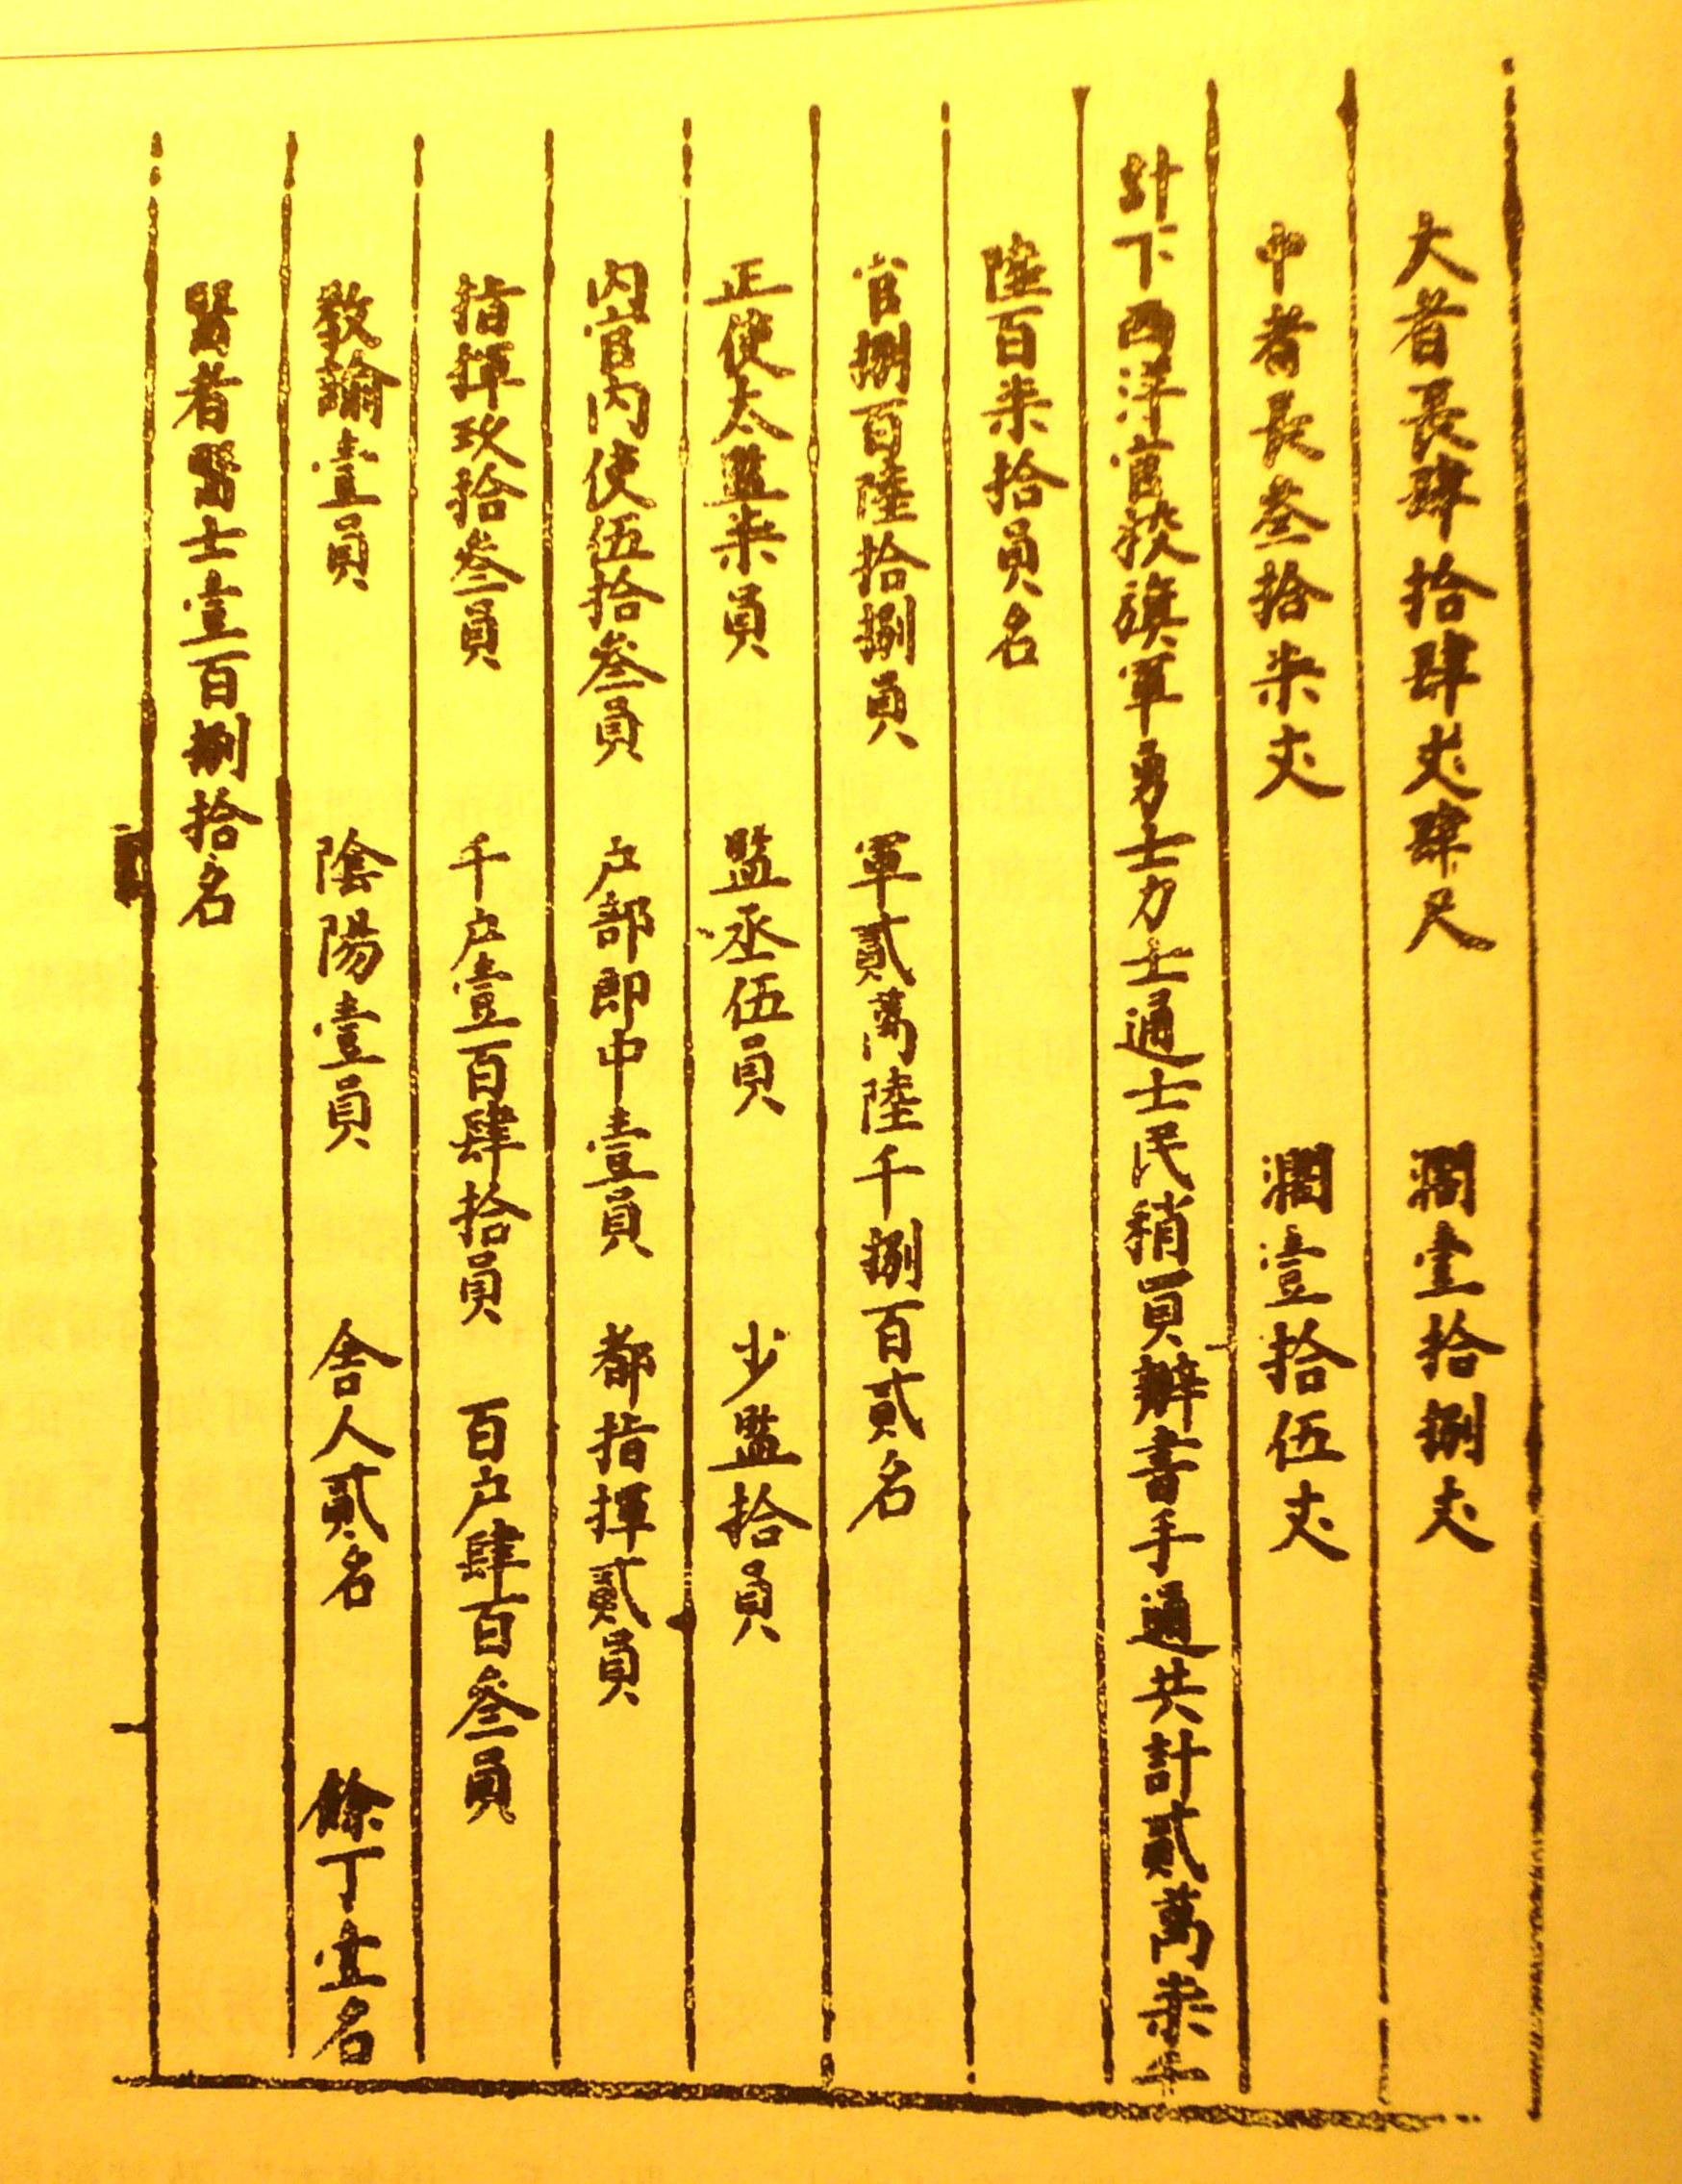 大者長肆拾肆丈肆尺 濶壹拾捌丈
中者長叁拾柒丈 濶壹拾伍丈
計下西洋官校旗軍勇士力士通士民稍買辦書手通共計貳萬柒千
陸百柒拾員名
官捌百陸拾捌員 軍貳萬陸千捌百貳名
正使太監柒員 監丞伍員 少監拾員
内官内使伍拾叁員 户部郎中壹員 都指揮貳員
指揮玖拾叁員 千户壹百肆拾員 百户肆百叁員
教諭壹員 陰陽壹員 舍人貳名 餘丁壹名
醫者醫士壹百捌拾名